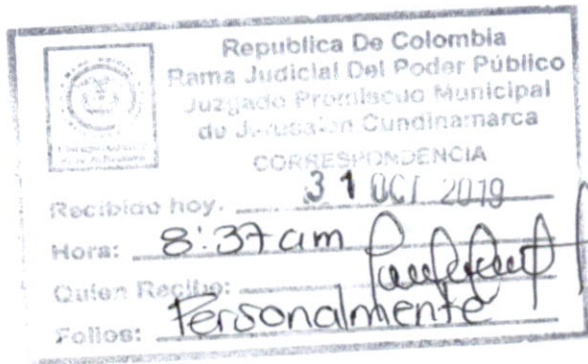 Republica De Colombia
Rama Judicial Del Poder Público
Juzgado Promiscuo Municipal
de Jerusalen Cundinamarca
CORRESPONDENCIA
Recibido hoy. 31 OCT 2019
Hora: 8:37 am
Quien Recibe:
Personalmente
Folios: